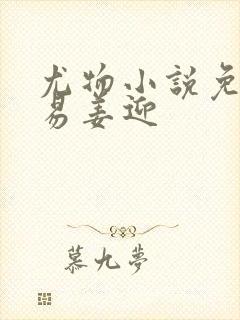 尤物小說免
易姜迎
慕九夢